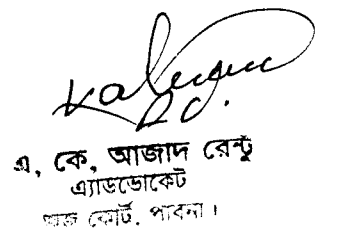 এ, কে, আজাদ রেন্টু
এ্যাডভোকেট
জজ কোর্ট, পাবনা।